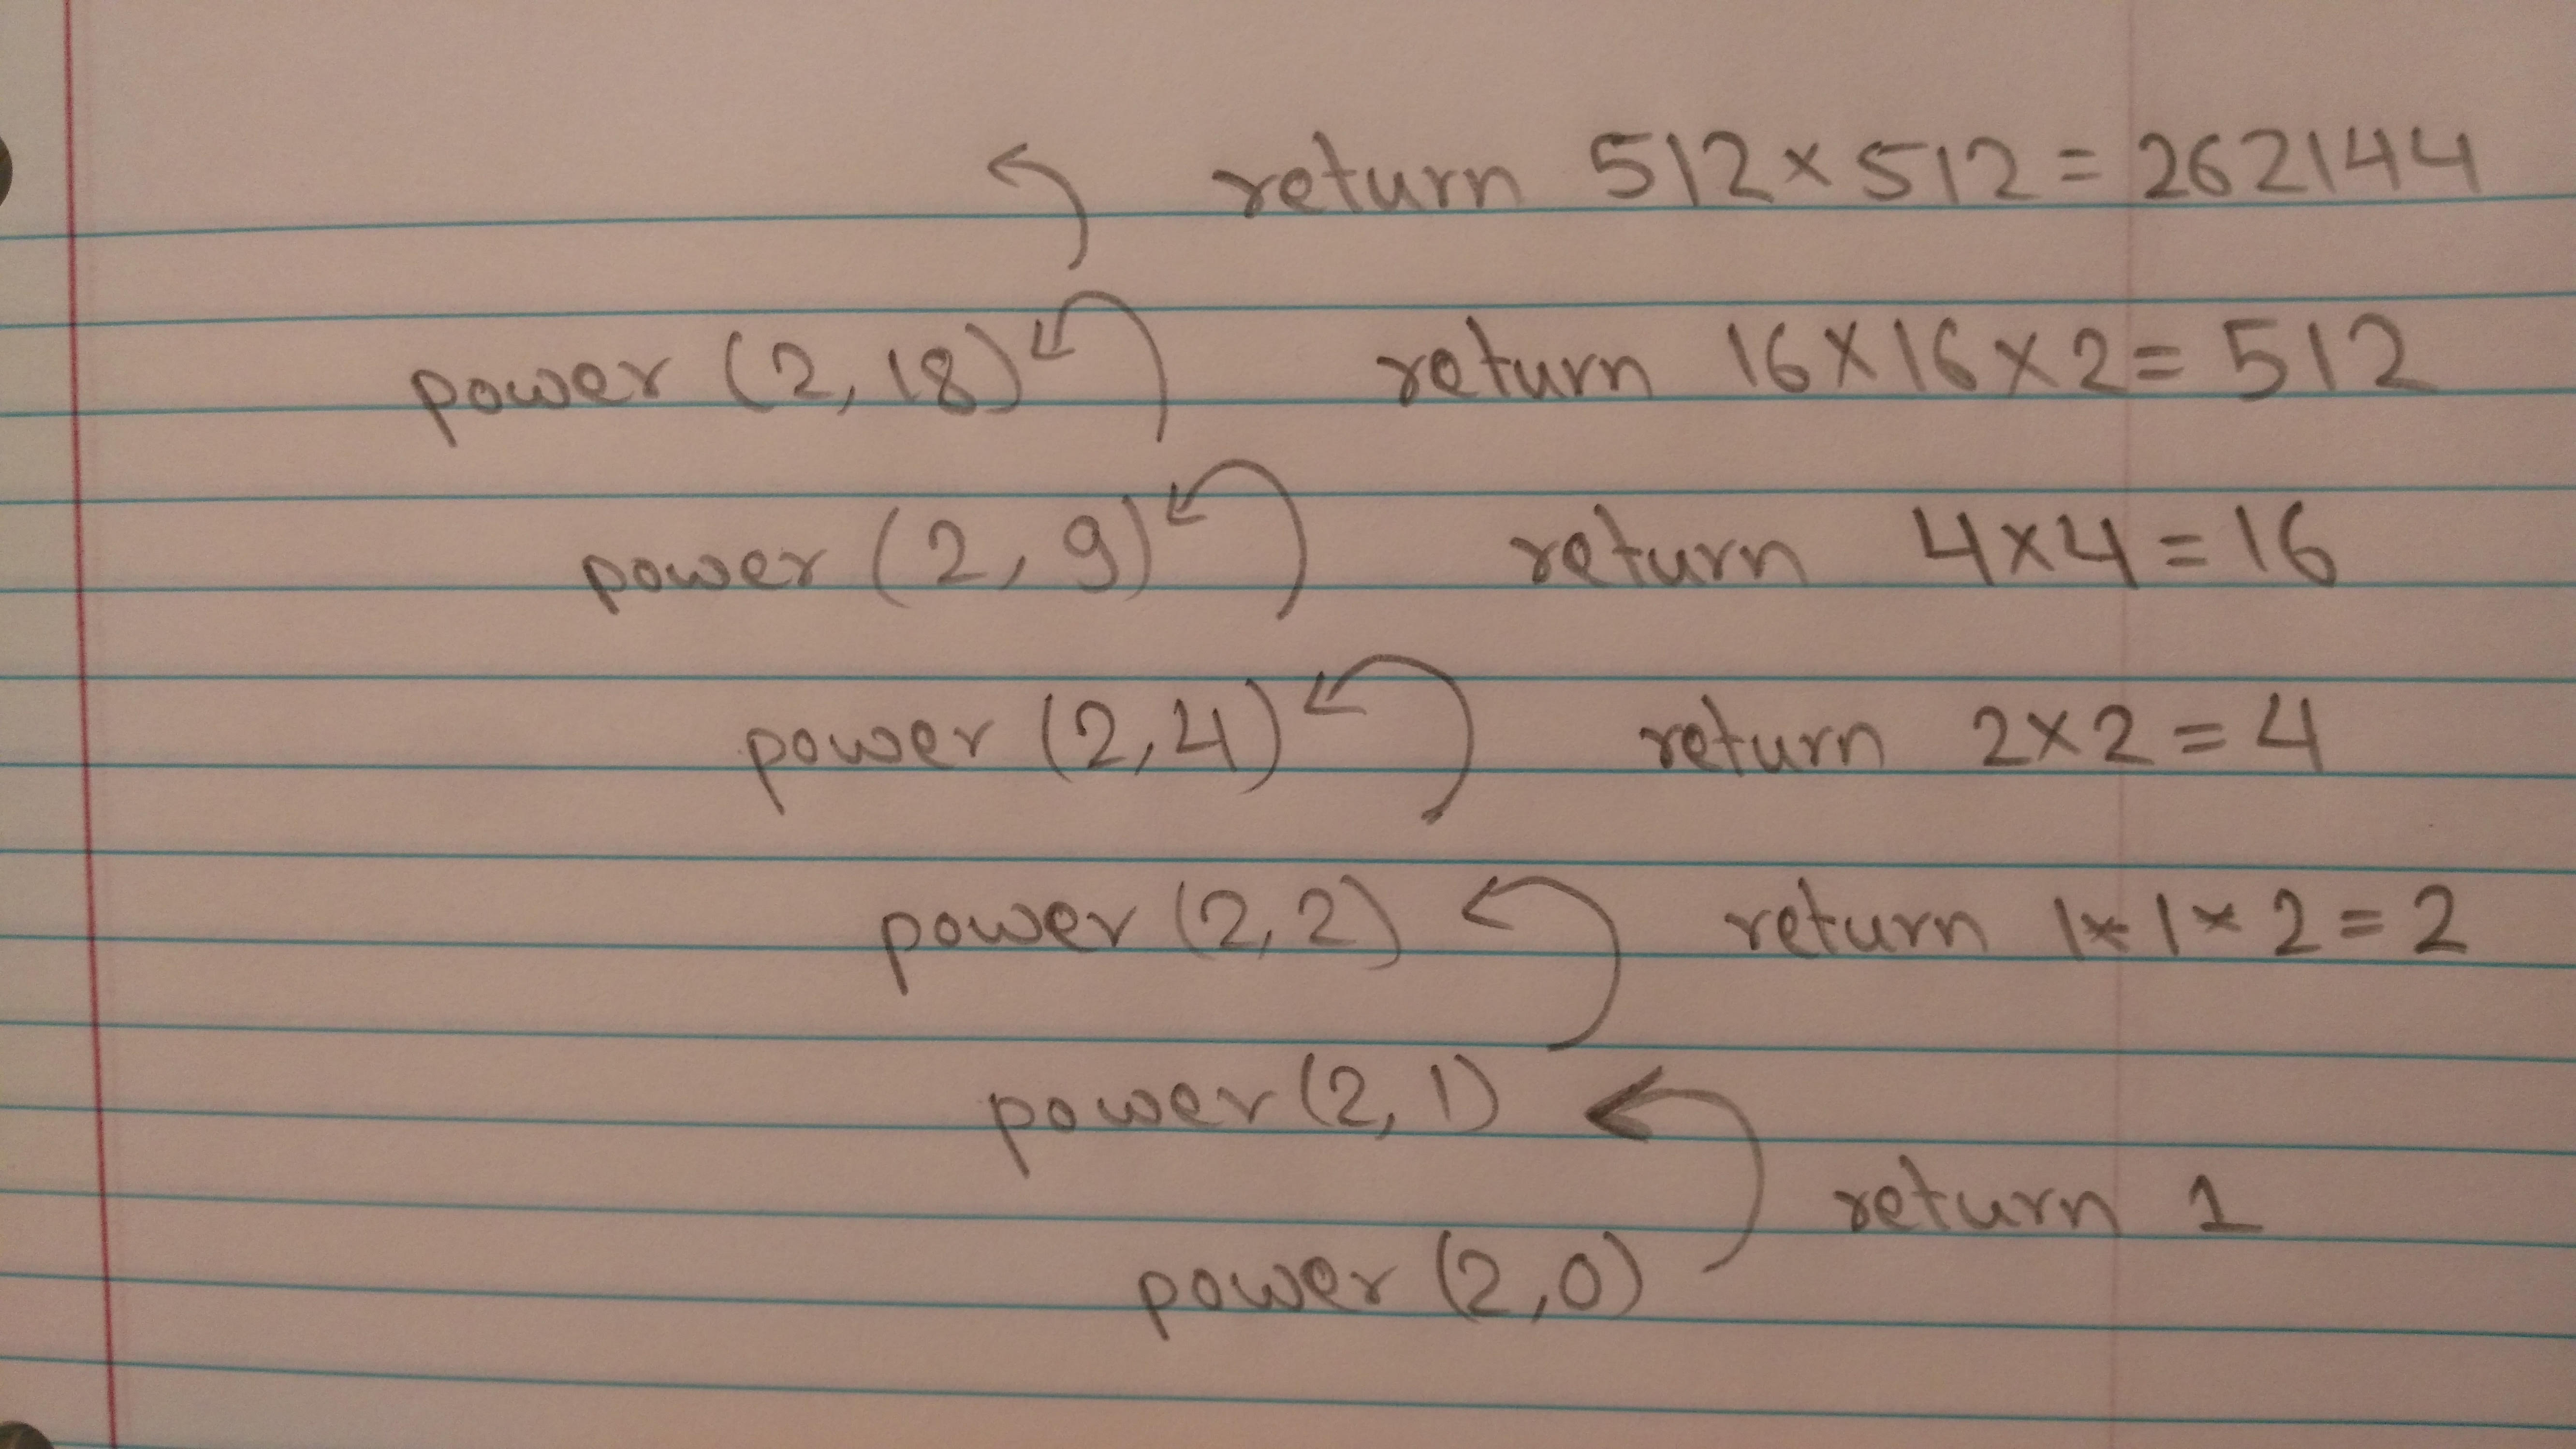 return 512×512=262144
power (2,18) return 16×16×2=512
power (2,9) return 4×4=16
power (2,4) return 2×2=4
power (2,2) return 1*1*2=2
power (2,1)
return 1
power (2,0)